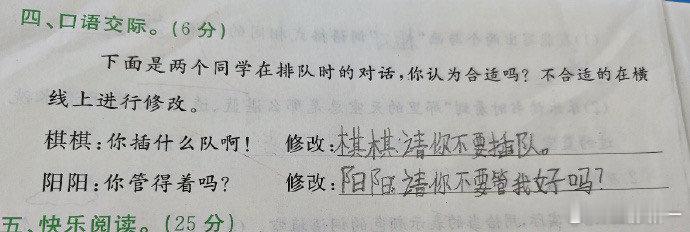 四、口语交际。(6分)
下面是两个同学在排队时的对话,你认为合适吗?不合适的在横
线上进行修改。
棋棋:你插什么队啊! 修改:棋棋:请你不要插队。
阳阳:你管得着吗? 修改:阳阳:请你不要管我好吗?
五、快乐阅读。(25分)